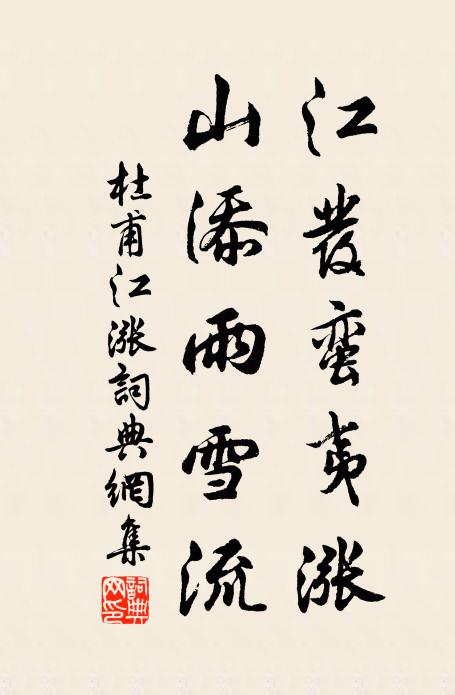 江發蛮夷漲
山添雨雪流
杜甫江漲詞典網集
詞典網印